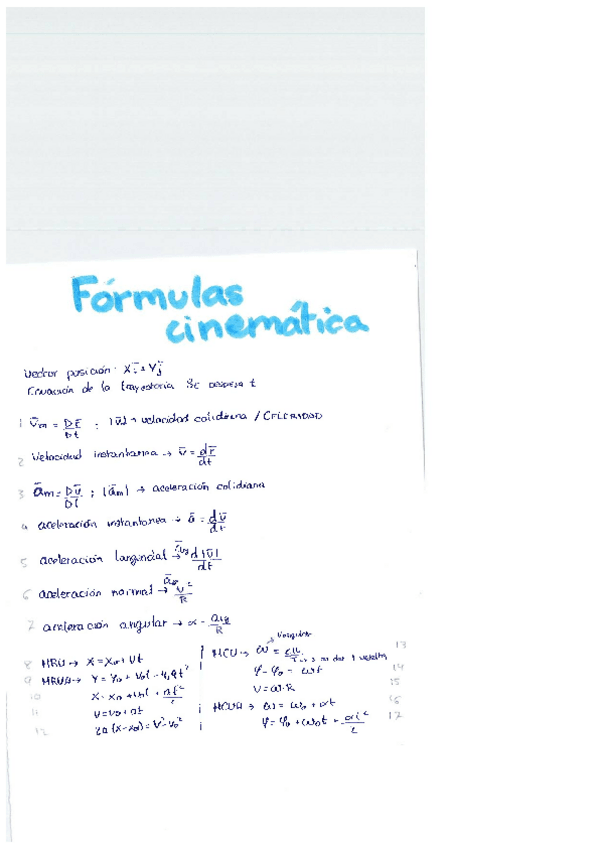 Fórmulas
cinemática
Vector posición: X i + Y j
Ecuación de la trayectoria Se despeja t
1 v̄m = Dr̄/Dt ; |v̄| → velocidad cotidiana / CELERIDAD
2 Velocidad instantanea → v̄ = dr̄/dt
3 ām = Dv̄/Dt ; |ām| → aceleración cotidiana
4 aceleración instantanea → ā = dv̄/dt
5 aceleración tangencial → d|v̄|/dt
6 aceleración normal → v²/R
7 aceleración angular → α = atg/R
8 MRU → X = X0 + Vt
9 MRUA → Y = Y0 + V0t - 4,9t²
10 X = X0 + V0t + at²/2
11 V = V0 + at
12 2a(X-X0) = V² - V0²
V angular
MCU → ω = 13
φ = φ0 + ωt 14
V = ω·R 15
MCUA → ω = ω0 + αt 16
φ = φ0 + ω0t + αt²/2 17